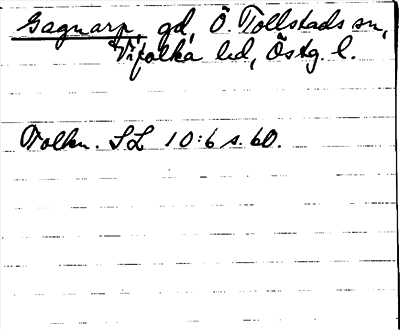 Gagnarp, gd, Ö. Tollstads sn,
Vifolka hd, Östg. l.
Tolkn. SL 10:6 s. 60.